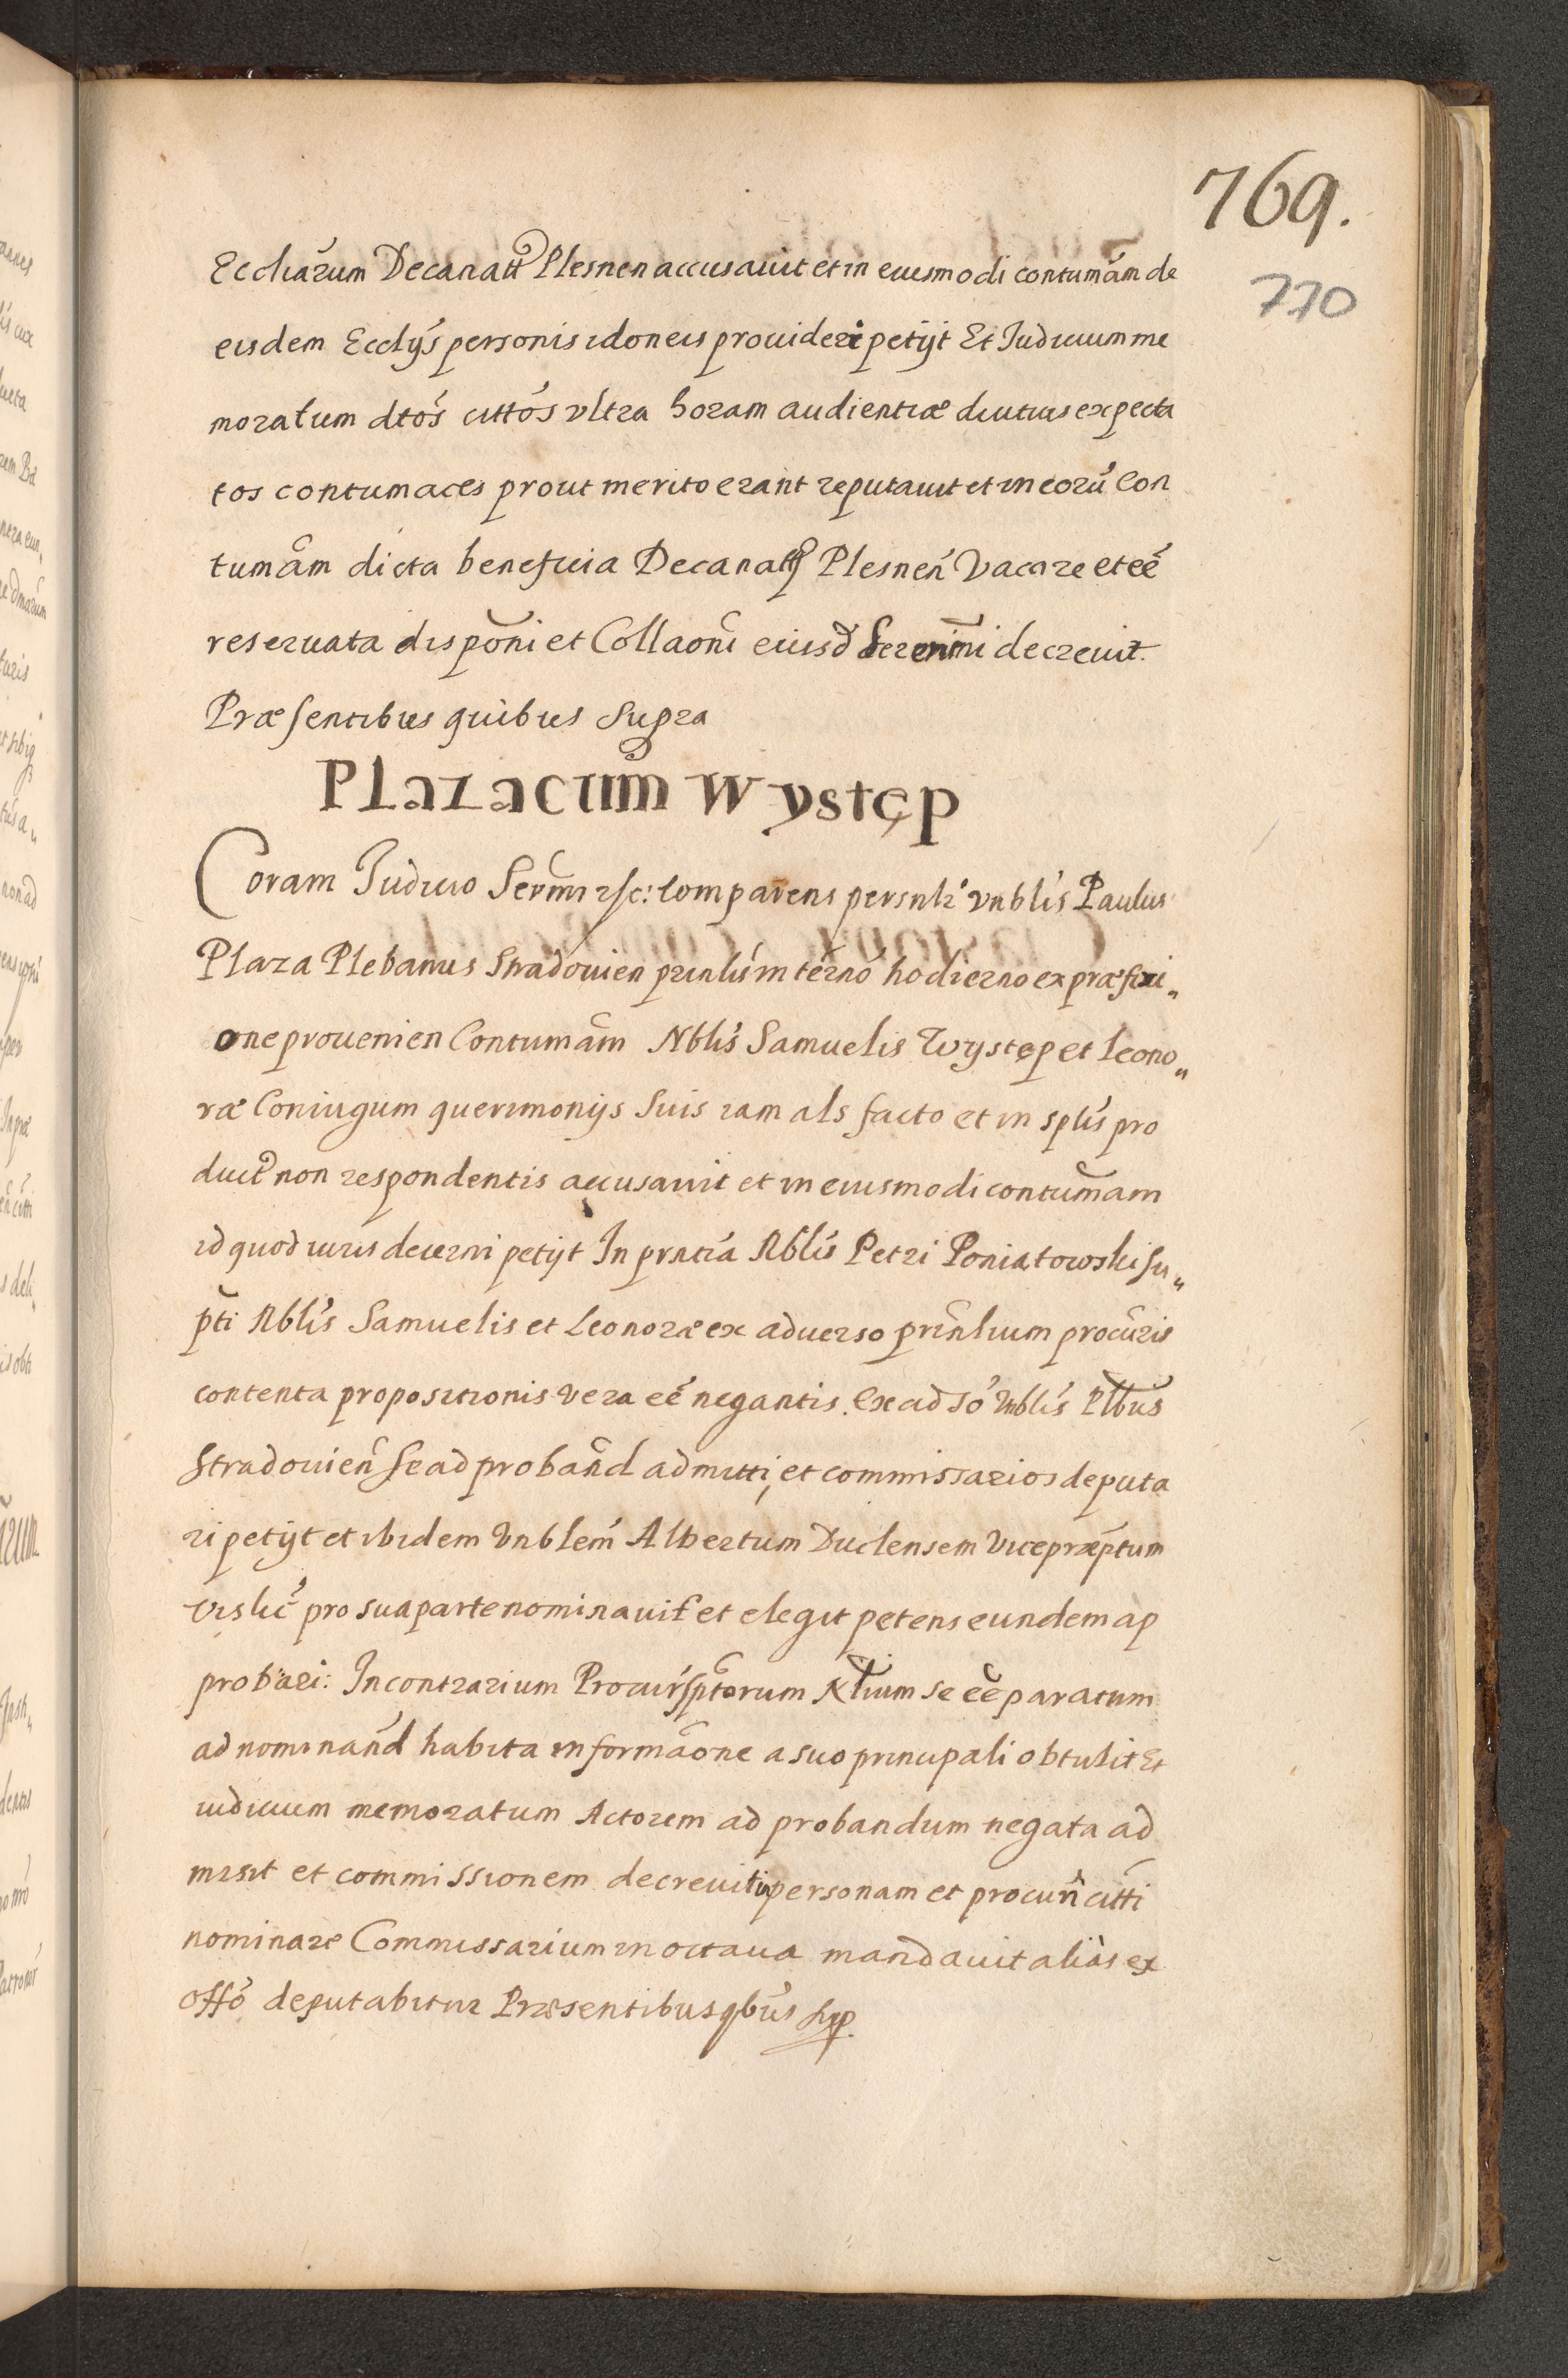 769.
770
Eccliarum Decanatꝰ Plesnen accusauit et in eiusmodi contumãm de
eisdem Ecclijs personis idoneis prouideri petijt Et Iudicium me
moratum dtos citt̃os vltra horam audientiæ diutius expecta
tos contumaces prout merito erant reputauit et in eorũ Con
tumãm dicta beneficia Decanatꝰ Plesneń Vacare et eẽ
reseruata disponi et Collaoni eiusd Serenmi decreuit.
Præsentibus quibus Supra
Plaza cum Występ
Coram Iudicio Sermi etc: Comparens persnlr vnblis Paulus
Plaza Plebanus Stradouien prinlis in termo hodierno ex præfixi„
one prouenien Contumãm Nblis Samuelis Występ et Leono„
ræ Coniugum querimonijs Suis iam als facto et in sptis pro
ductꝰ non respondentis accusauit et in eiusmodi contumãm
id quod iuris decerni petijt In prntia Nblis Petri Poniatowski su„
pti Nblis Samuelis et Leonoræ ex aduerso prinlium procuris
contenta propositionis Vera eẽ negantis. Ex adso Vnblis Plbus
Stradouień Se ad proband admitti, et commissarios deputa
ri petijt et ibidem Vnblem Albertum Duclensem Vicepræptum
Vislic pro sua parte nominauit et elegit petens eundem ap
probari: In contrarium Procur sptorum Nlium se eẽ paratum
ad nominand habita informãone a suo principali obtulit Et
iudicium memoratum Actorem ad probandum negata ad
misit et commissionem decreuit in personam et procurñ citti
nominare Commissarium in octaua mandauit aliàs ex
offo deputabitur Præsentibus qbus sup.